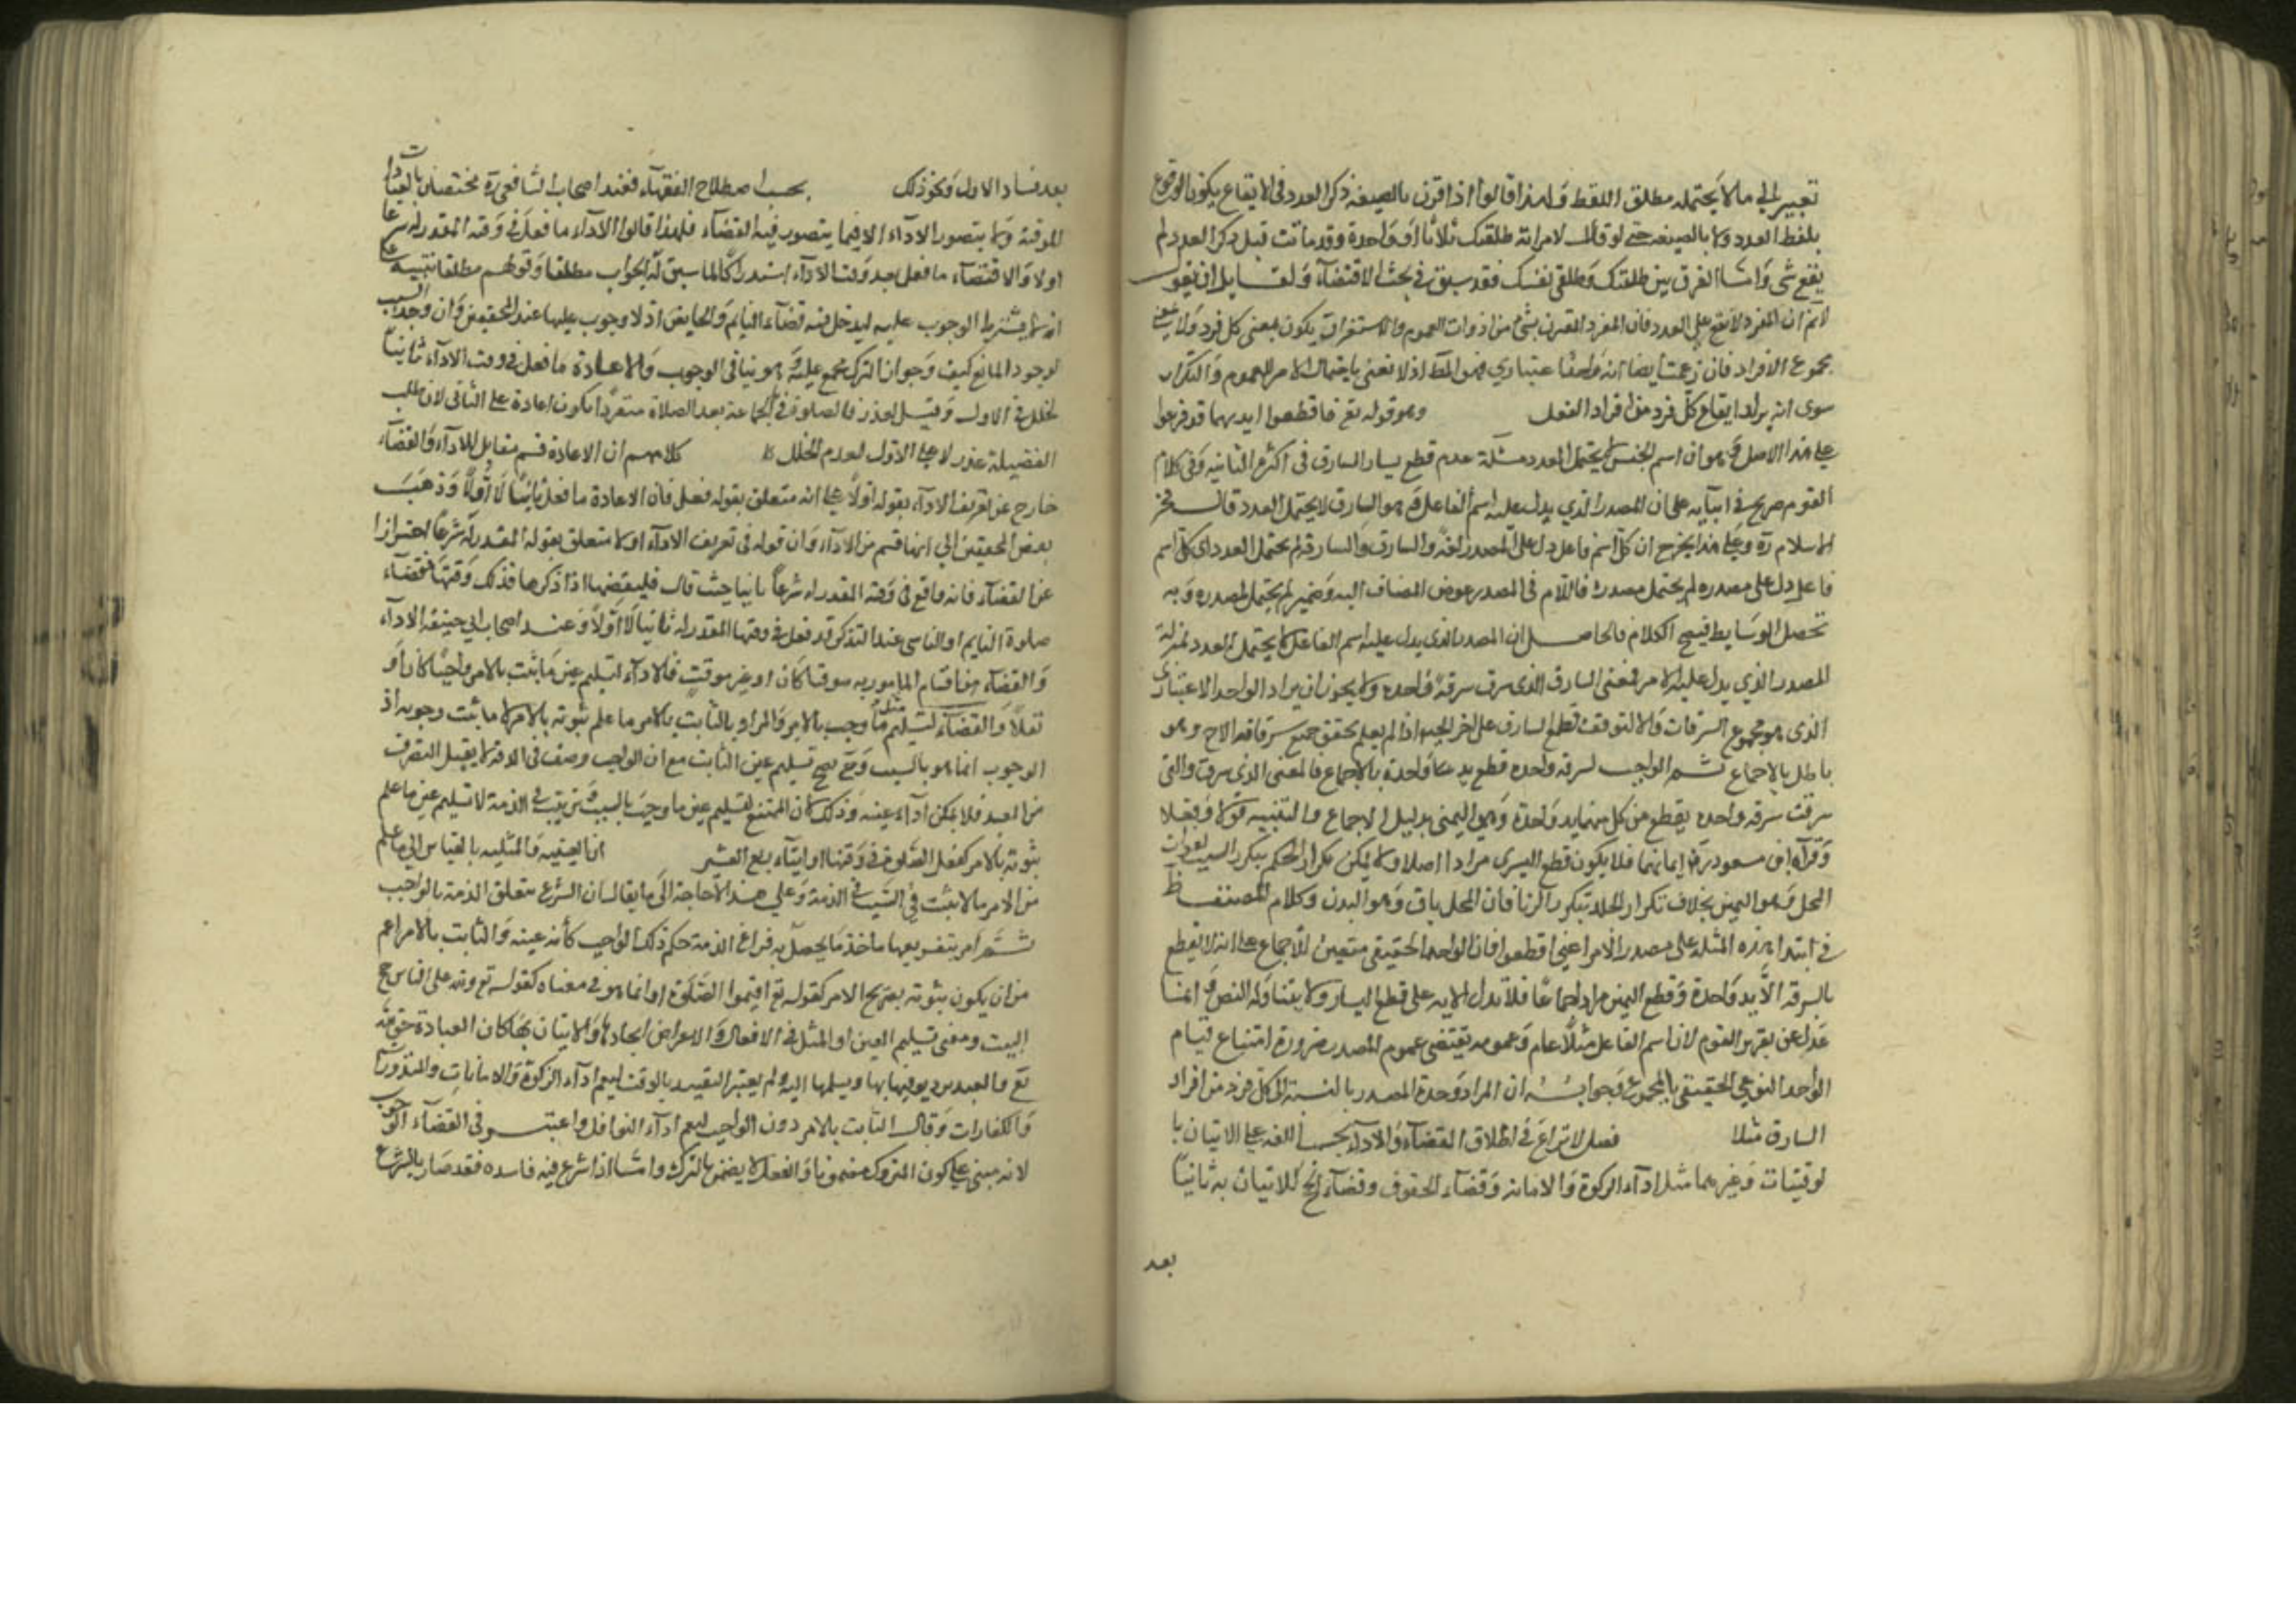 تغيير الى ما لا يحتمله مطلق اللفظ ولهذا قالوا اذا قرن بالصيغة ذكر العدد فى الايقاع يكون الوقوع
بلفظ العدد لا بالصيغة حتى لو قال لامراته طلقتك ثلاثا او واحدة وقد ماتت قبل ذكر العدد لم
يقع شى واما الفرق بين طلقتك وطلقى نفسك فقد سبق فى بحث الاقتضاء ولقايل ان يقول
لانم ان المفرد لا يقع على العدد فان المفرد المقرن بشئ من ادوات العموم والاستغراق يكون بمعنى كل فرد ولا بمعنى
مجموع الافراد فان زعمت ايضا انه واحد اعتبارى فهو المط اذ لا نعنى باحتمال الامر للعموم والتكرار
سوى انه يراد ايقاع كل فرد من افراد الفعل وهو قوله تع فاقطعوا ايديهما قد فرعوا
على هذا الاصل وهو ان اسم الجنس لا يحتمل العدد مسئلة عدم قطع يسار السارق فى الكرة الثانية وفى كلام
القوم صريح فى ابتنائه على ان المصدر الذي يدل عليه اسم الفاعل وهو السارق لا يحتمل العدد قال فخر
الاسلام ره وعلى هذا يخرج ان كل اسم فاعل دل على المصدر لغة والسارق والسارقة لم يحتمل العدد اى كل اسم
فاعل دل على مصدره لم يحتمل مصدره فاللام فى المصدر عوض المضاف اليه وضمير لم يحتمل لمصدره وبه
تحصل الوسايط فيصح الكلام فالحاصل ان المصدر الذى يدل عليه اسم الفاعل لا يحتمل العدد بمنزلة
المصدر الذي يدل عليه الامر فمعنى السارق الذى سرق سرقة واحدة ولا يجوز ان يراد الواحد الاعتبارى
الذى هو مجموع السرقات والا لتوقف قطع السارق على اخر الحيوة اذا لم يعلم تحقق جميع سرقاته الاح وهو
باطل بالاجماع ثم الواجب لسرقة واحدة قطع يد واحدة بالاجماع فالمعنى الذى سرق والتى
سرقت سرقة واحدة يقطع من كل منهما يد واحدة وهى اليمنى بدليل الاجماع والسنة قولا وفعلا
وقرآة ابن مسعود رض ايمانهما فلا يكون قطع اليسرى مرادا اصلا ولا يمكن تكرار الحكم بتكرر السبب لفوات
المحل وهو اليمين بخلاف تكرار الجلد بتكرر الزنا فان المحل باق وهو البدن وكلام المصنف ظ
فى ابتداء هذه المسئلة على مصدر الامر اعنى اقطعوا فان الواحد الحقيقى متعين للاجماع على انه لا يقطع
بالسرقة الا يد واحدة وقطع اليمين مراد اجماعا فلا يدل الاية على قطع اليسار ولا يتناوله النص وانما
عدل عن تقرير القوم لان اسم الفاعل مثلا عام وعمومه يقتضى عموم المصدر ضرورة امتناع قيام
الواحد النوعى الحقيقى بالمجموع وجوابه ان المراد وحدة المصدر بالنسبة الى كل فرد من افراد
السارق مثلا فصل لا نزاع فى اطلاق القضاء والاداء بحسب اللغة على الاتيان با
لوقتيات وغيرهما مثل اداء الزكوة والامانة وقضاء الحقوق وقضاء الحج للاتيان به ثانيا
بعد
بعد فساد الاول ونحو ذلك بحسب اصطلاح الفقهاء فعند اصحاب الشافعى ره مختصان بالعبادات
الموقتة ولا يتصور الاداء الا فيما يتصور فيه القضاء فلهذا قالوا الاداء ما فعل فى وقته المقدر له شرعا
اولا والاقتضاء ما فعل بعد وقت الاداء استدراكا لما سبق له الوجوب مطلقا وقولهم مطلقا تنبيه على
انه لا يشترط الوجوب عليه ليدخل فيه قضاء النايم والحايض اذ لا وجوب عليهما عند المحققين وان وجد السبب
لوجود المانع كيف وجواز الترك مجمع عليه وهو ينافى الوجوب والاعادة ما فعل فى وقت الاداء ثانيا
لخلل فى الاول وقيل لعذر فالصلوة فى الجماعة بعد الصلاة منفردا يكون اعادة على الثانى لان طلب
الفضيلة عذر لا على الاول لعدم الخلل كلامهم ان الاعادة قسم مقابل للاداء والقضاء
خارج عن تعريف الاداء بقوله اولا على انه متعلق بقوله فعل فان الاعادة ما فعل ثانيا لا اولا وذهب
بعض المحققين الى انها قسم من الاداء وان قوله فى تعريف الاداء اولا متعلق بقوله المقدر له شرعا احترازا
عن القضاء فانه واقع فى وقته المقدر له شرعا ثانيا حيث قال فليقضها اذا ذكرها فذلك وقتها فقضاء
صلوة النايم او الناسى عند التذكر قد فعل فى وقتها المقدر له ثانيا لا اولا وعند اصحاب ابي حنيفة الاداء
والقضاء من اقسام المامور به موقتا كان او غير موقت فالاداء تسليم عين ما ثبت بالامر واجبا كان او
نفلا والقضاء تسليم مثل ما وجب بالامر والمراد بالثابت بالامر ما علم ثبوته بالامر لا ما ثبت وجوبه اذ
الوجوب انما هو بالسبب وح يصح تسليم عين الثابت مع ان الواجب وصف فى الذمة لا يقبل التصرف
من العبد فلا يمكن اداء عينه وذلك لان الممتنع تسليم عين ما وجب بالسبب وثبت فى الذمة لا تسليم عين ما علم
ثبوته بالامر كفعل الصلوة فى وقتها او ايتاء ربع العشر اذ العينية والمثلية بالقياس الى ما علم
من الامر ما لا يثبت فى السبب فى الذمة وعلى هذا لا حاجة الى ما يقال ان الشرع متعلق الذمة بالواجب
ثم امر بتفريعها فاخذ ما يحصل به فراغ الذمة حكم ذلك الواجب كأنه عينه والثابت بالامر اعم
من ان يكون ثبوته بصريح الامر كقوله تع اقيموا الصلوة او انما هو فى معناه كقوله تع ولله على الناس حج
البيت ومعنى تسليم العين او المثل فى الافعال والاعراض ايجادها والاتيان بها كان العبادة حق لله
تع فالعبد يوديها بها ويسلمها اليه ولم يعتبر التقييد بالوقت ليعم اداء الزكوة والامانات والمنذورات
والكفارات وقال الثابت بالامر دون الواجب ليعم اداء النوافل واعتبر فى القضاء الوجوب
لانه مبنى على كون المتروك مضمونا والنفل لا يضمن بالترك واما اذا شرع فيه فافسده فقد صار بالشرع